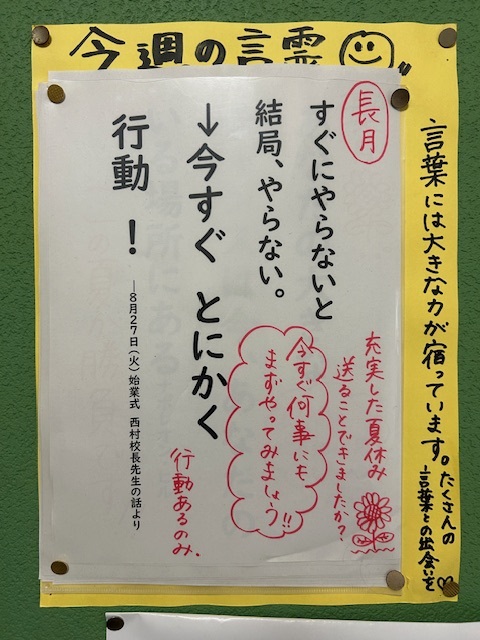 今週の言霊
言葉には大きな力が宿っています。
たくさんの
言葉との出会いを♡
長月
すぐにやらないと
結局、やらない。
→今すぐ とにかく
行動 ！
―8月27日(火)始業式 西村校長先生の話より
充実した夏休み
送ることできましたか?
今すぐ何事にも
まずやってみましょう!!
行動あるのみ.